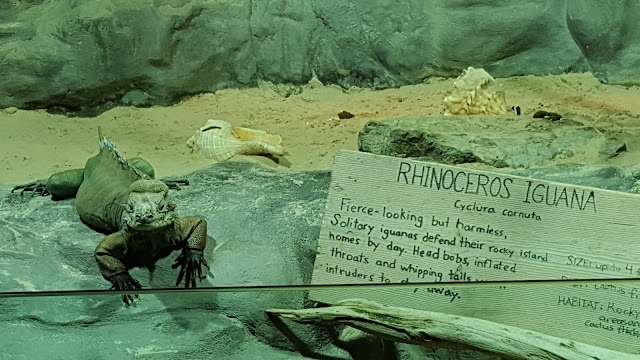 RHINOCEROS IGUANA
Cyclura cornuta
Fierce-looking but harmless,
Solitary iguanas defend their rocky island
homes by day. Head bobs, inflated
throats and whipping tails
intruders away.
SIZE: up to 4
HABITAT: Rocky
areas
cactus thick